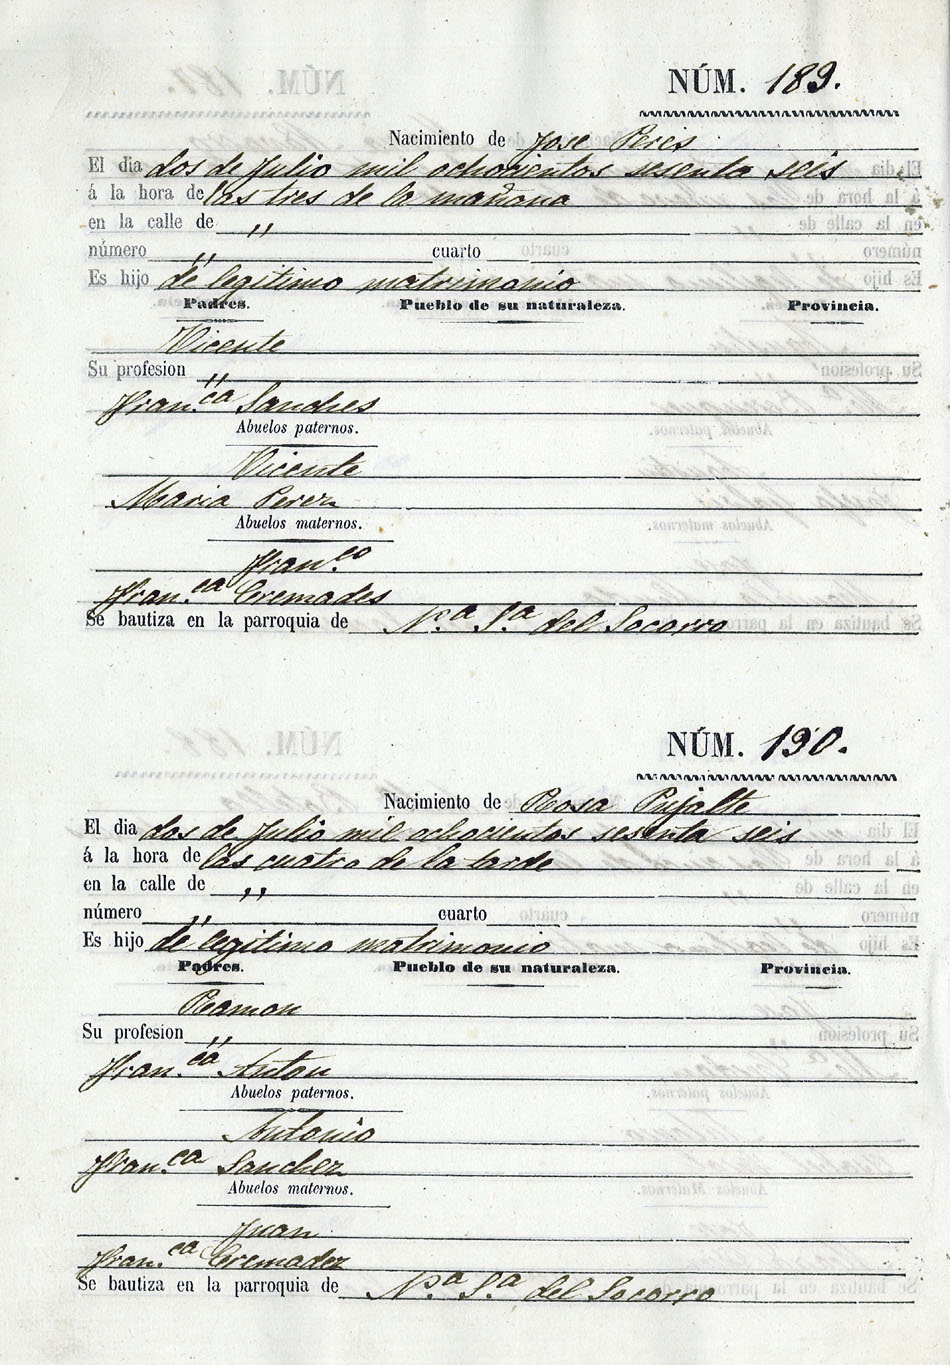 NÚM. 189.
Nacimiento de Jose Peris
El dia dos de Julio mil ochocientos sesenta seis
á la hora de las tres de la mañana
en la calle de "
número " cuarto
Es hijo de legitimo matrimonio
Padres. Pueblo de su naturaleza. Provincia.
Vicente
Su profesion "
Fran.ca Sanches
Abuelos paternos.
Vicente
Maria Perez
Abuelos maternos.
Fran.co
Fran.ca Cremades
Se bautiza en la parroquia de N.a S.a del Socorro
NÚM. 190.
Nacimiento de Rosa Pujalte
El dia dos de Julio mil ochocientos sesenta seis
á la hora de las cuatro de la tarde
en la calle de "
número " cuarto
Es hijo de legitimo matrimonio
Padres. Pueblo de su naturaleza. Provincia.
Ramon
Su profesion "
Fran.ca Anton
Abuelos paternos.
Antonio
Fran.ca Sanchez
Abuelos maternos.
Juan
Fran.ca Cremadez
Se bautiza en la parroquia de N.a S.a del Socorro